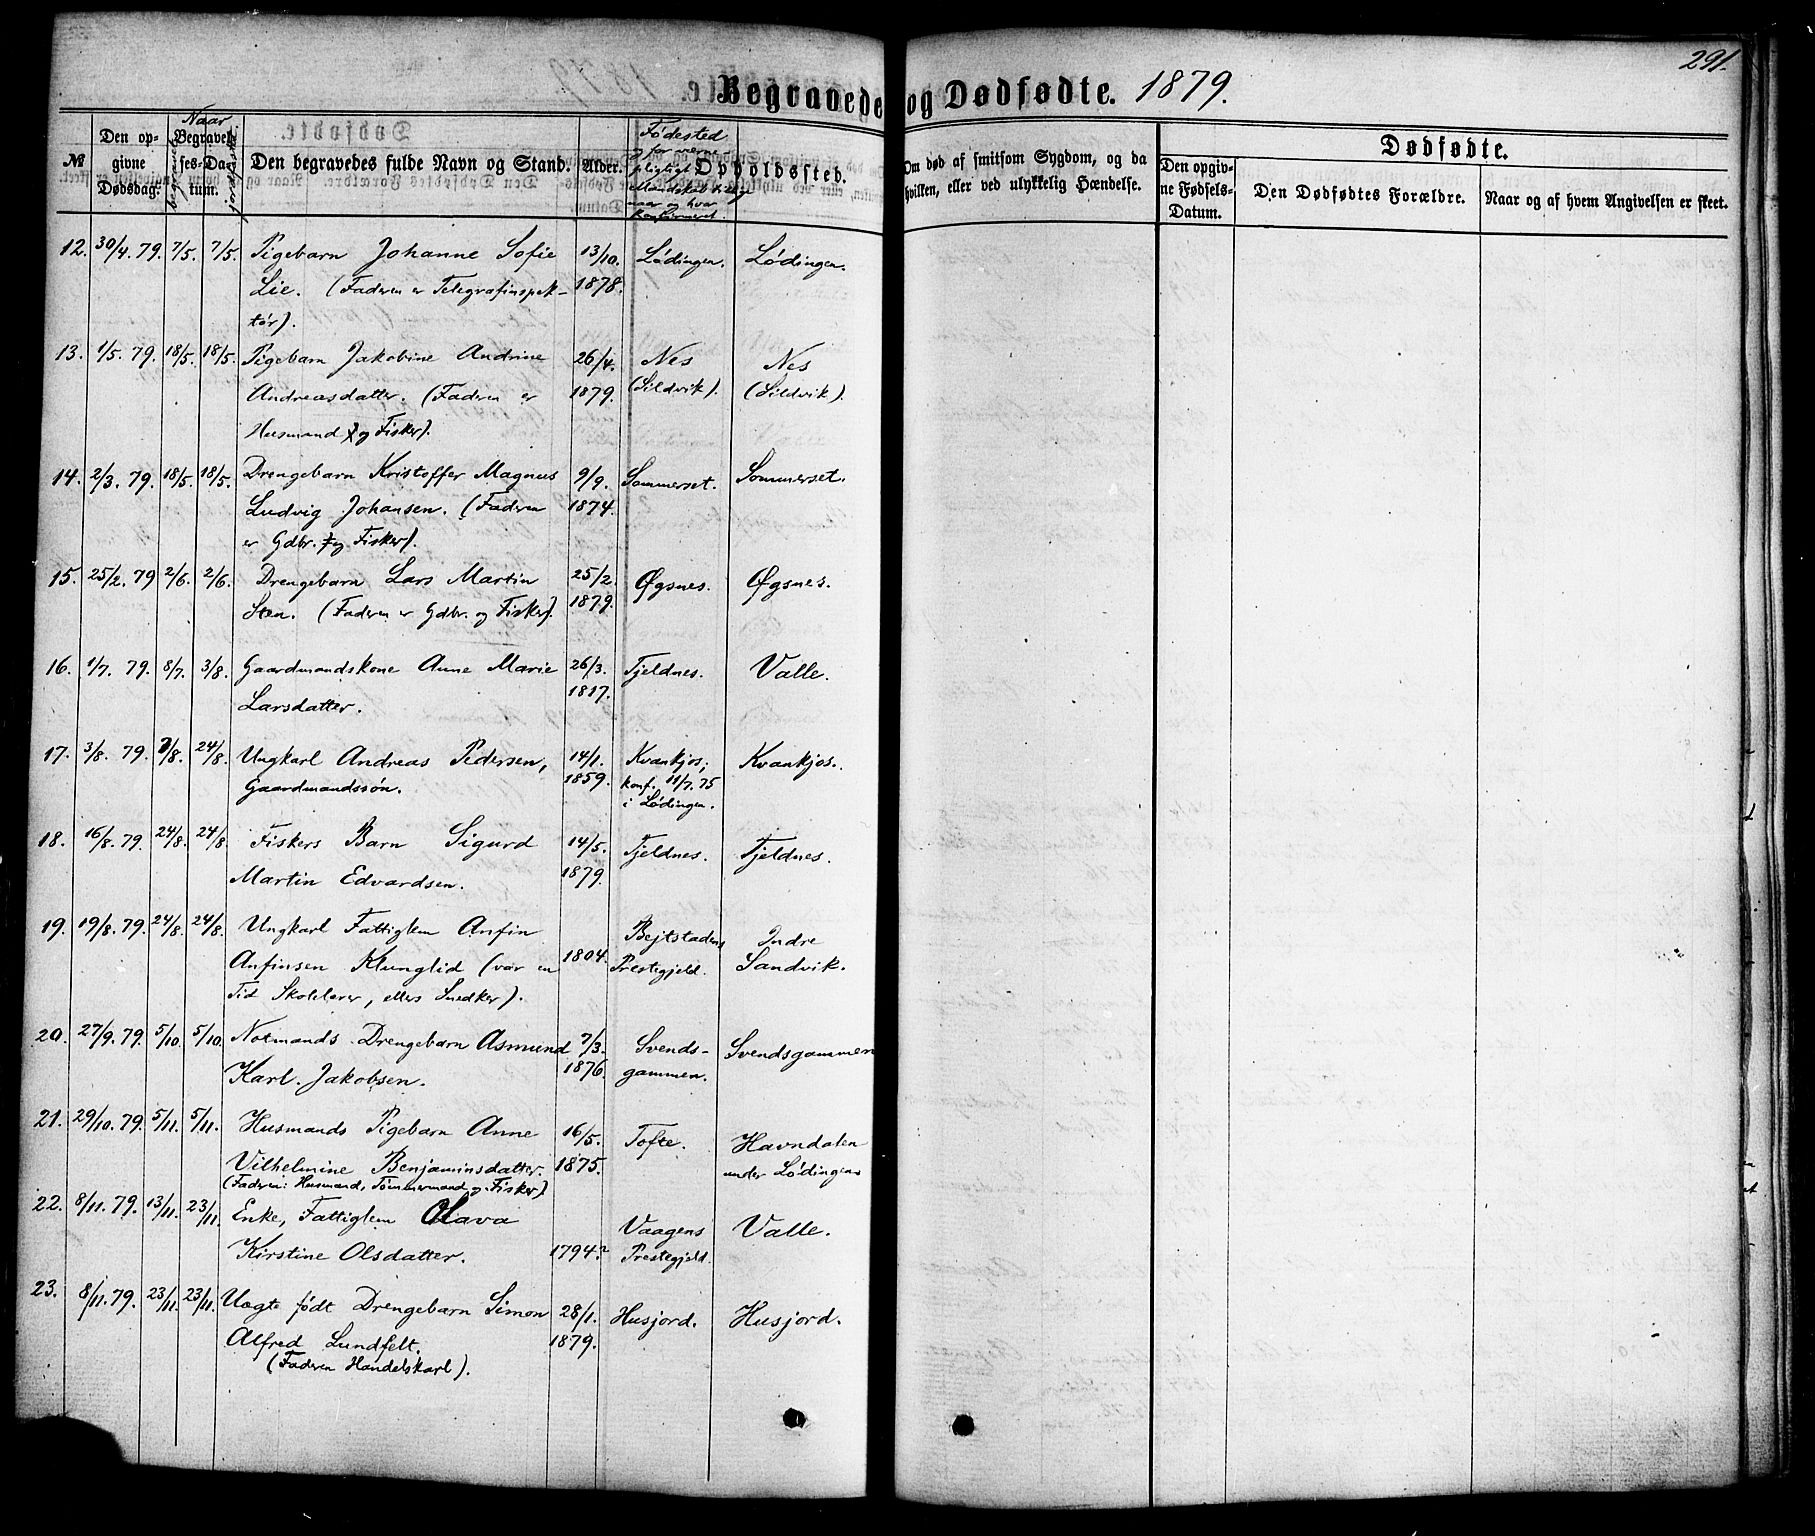 291.
Begravede og Dødfødte. 1879.
№
Den opgivne Dødsdag.
Naar
Begravelses-Datum.
begravet
jordfæstet
Den begravedes fulde Navn og Stand.
Alder.
Fødested
og for værne-
pligtigt
Mandskab tillige
naar og hvor
konfirmeret
Opholdssted.
Om død af smitsom Sygdom, og da
hvilken, eller ved ulykkelig Hændelse.
Dødfødte.
Den opgiv-
ne Fødsels-
Datum.
Den Dødfødtes Forældre.
Naar og af hvem Angivelsen er skeet.
12. 30/4. 79. 7/5. 7/5. Pigebarn Johanne Sofie 13/10. Lødingen. Lødingen.
Lie. (Faderen er Telegrafinspek- 1878.
tør).
13. 1/5. 79. 18/5. 18/5. Pigebarn Jakobine Andrine 26/4. Nes Nes
Andreasdatter. (Faderen er 1879. (Sildvik). (Sildvik).
Husmand og Fisker).
14. 2/3. 79. 18/5. 18/5. Drengebarn Kristoffer Magnus 9/9. Sommerset. Sommerset.
Ludvig Johansen. (Faderen 1874.
er Gdbr. og Fisker).
15. 25/2. 79 2/6. 2/6. Drengebarn Lars Martin 25/2. Øgsnes. Øgsnes.
Sten. (Faderen er Gdbr. og Fisker). 1879.
16. 1/7. 79. 8/7. 3/8. Gaardmandskone Anne Marie 26/3. Tjeldnes. Valle.
Larsdatter. 1817.
17. 3/8. 79. 7/8. 24/8. Ungkarl Andreas Pedersen, 14/1. Kvankjos; Kvankjos.
Gaardmandssøn. 1859. konf. 11/7. 75
i Lødingen.
18. 16/8. 79. 24/8. 24/8. Fiskers Barn Sigurd 14/5. Tjeldnes. Tjeldnes.
Martin Edvardsen. 1879.
19. 19/8. 79. 24/8. 24/8. Ungkarl Fattiglem Anfin Bejtstadens Indre
Anfinsen Klunglid (var en 1804. Prestegjeld. Sandvik.
Tid Skolelærer, ellers Snedker).
20. 27/9. 79. 5/10. 5/10. Notmands Drengebarn Asmund 7/3. Svends- Svendsgammen
Karl. Jakobsen. 1876. gammen.
21. 29/10. 79. 5/11. 5/11. Husmands Pigebarn Anne 16/5. Tofte. Havndalen
Vilhelmine Benjaminsdatter. 1875. under Lødingen
(Faderen: Husmand, Tømmermand og Fisker)
22. 8/11. 79. 13/11. 23/11. Enke, Fattiglem Olava Vaagens Valle.
Kirstine Olsdatter. 1794? Prestegjeld.
23. 8/11. 79. 23/11. 23/11. Uægte født Drengebarn Simon 28/1. Husjord. Husjord.
Alfred Lundfelt. 1879.
(Faderen Handelskarl).